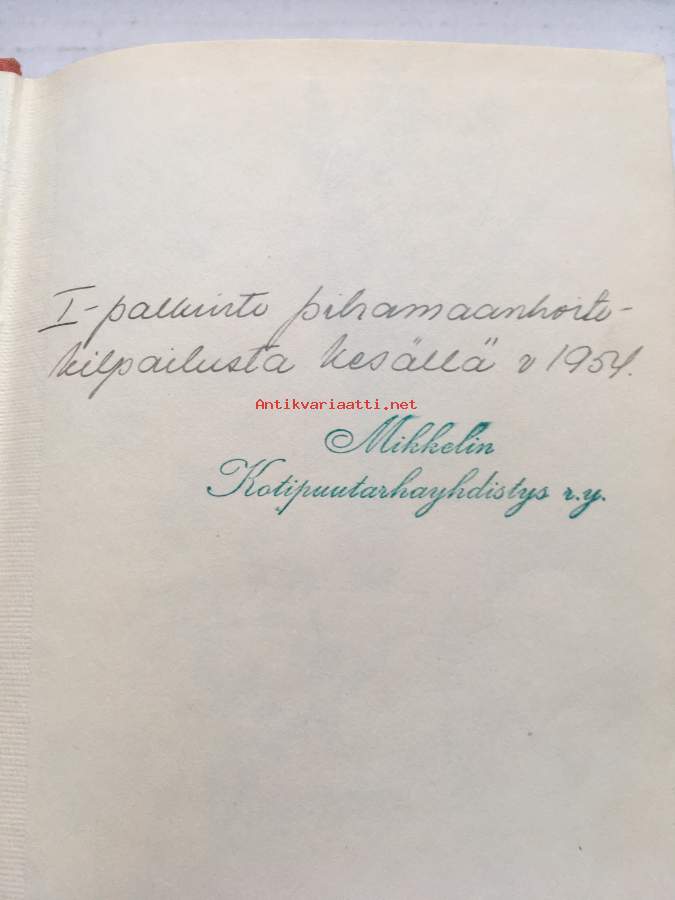 I-palkinto pihamaanhoito-
kilpailusta kesällä v 1954.
Antikvariaatti.net
Mikkelin
Kotipuutarhayhdistys r.y.